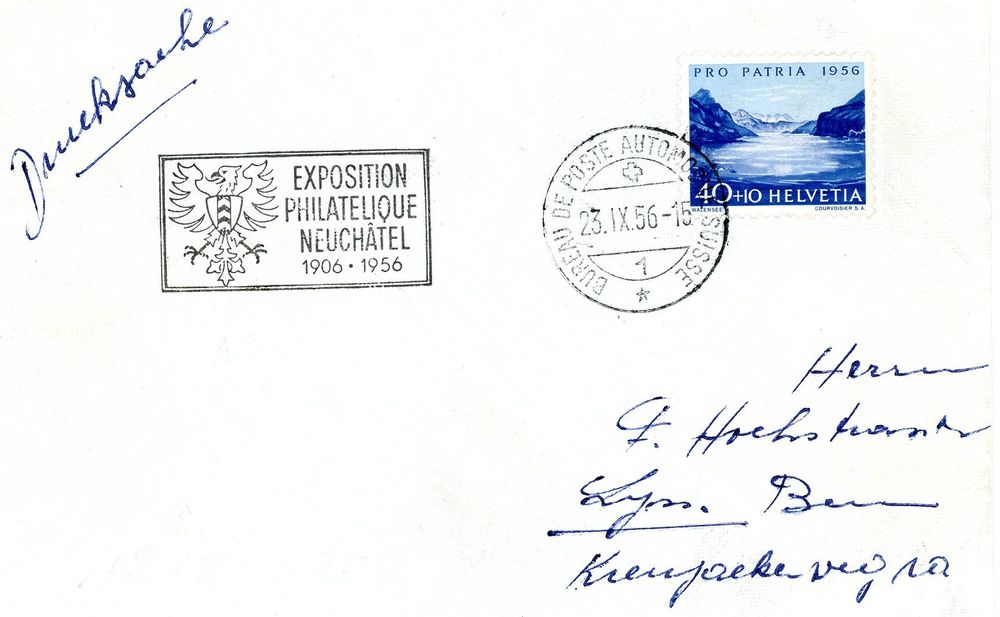 Drucksache
EXPOSITION
PHILATELIQUE
NEUCHÂTEL
1906 · 1956
BUREAU DE POSTE AUTOMOBILE SUISSE
23.IX.56-15
1
PRO PATRIA 1956
40+10 HELVETIA
WALENSEE COURVOISIER S.A.
Herrn
F. Hochstrasser
Lyss. Bern